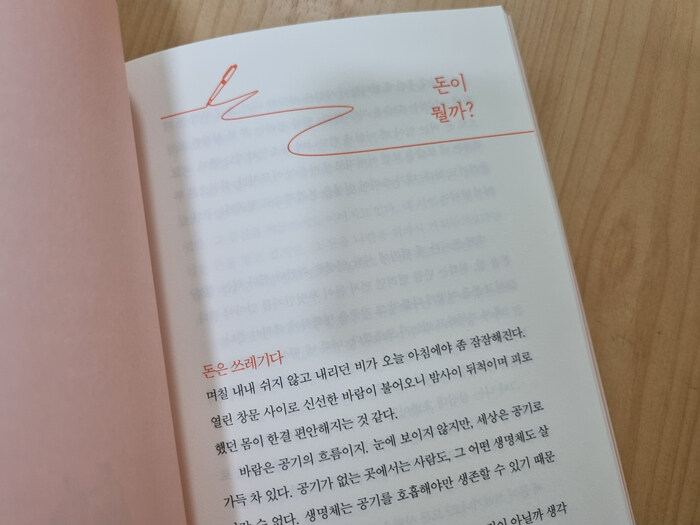 돈이
뭘까?
돈은 쓰레기다
며칠 내내 쉬지 않고 내리던 비가 오늘 아침에야 좀 잠잠해진다.
열린 창문 사이로 신선한 바람이 불어오니 밤사이 뒤척이며 피로
했던 몸이 한결 편안해지는 것 같다.
바람은 공기의 흐름이지. 눈에 보이지 않지만, 세상은 공기로
가득 차 있다. 공기가 없는 곳에서는 사람도, 그 어떤 생명체도 살
수 없다. 생명체는 공기를 호흡해야만 생존할 수 있기 때문
아닐까 생각